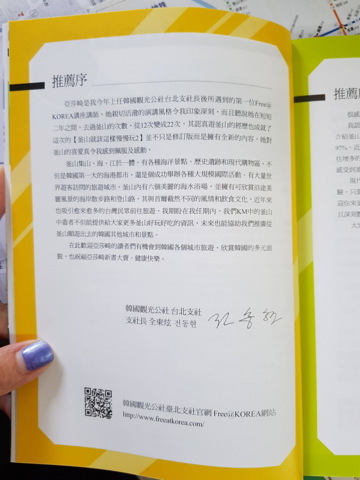 推薦序
亞莎崎是我今年上任韓國觀光公社台北支社長後所遇到的第一位Free@
KOREA講座講師。她親切活潑的演講風格令我印象深刻，而且聽說她在短短
二年之間，去過釜山的次數，從12次變成22次，其認真遊釜山的經歷也成就了
這次的【釜山就該這樣慢慢玩2】並不只是修訂版而是擁有全新的內容，她對
釜山的喜愛真令我感到佩服及感動。
釜山集山、海、江於一體，有各種海洋景點、歷史遺跡和現代購物區，不
但是韓國第一大的海港都市，還是個成功舉辦各種大規模國際活動，有大量世
界遊客訪問的旅遊城市。釜山內有六個美麗的海水浴場，並擁有可欣賞沿途美
麗風景的海岸散步路和登山路，其與首爾截然不同的風情和飲食文化，近年來
也吸引愈來愈多的台灣民眾前往旅遊。我期盼在我任期內，我們KM中的釜山
中毒者不但能提供給大家更多釜山好玩好吃的資訊，未來也能協助我們推廣從
釜山順遊出去的韓國其他城市和景點。
在此歡迎亞莎崎的讀者們有機會到韓國各個城市旅遊，欣賞韓國的多元面
貌，也祝福亞莎崎新書大賣、健康快樂。
韓國觀光公社 台北支社
支社長 全東炫 전동현
韓國觀光公社臺北支社官網 Free@KOREA網站
http://www.freeatkorea.com/